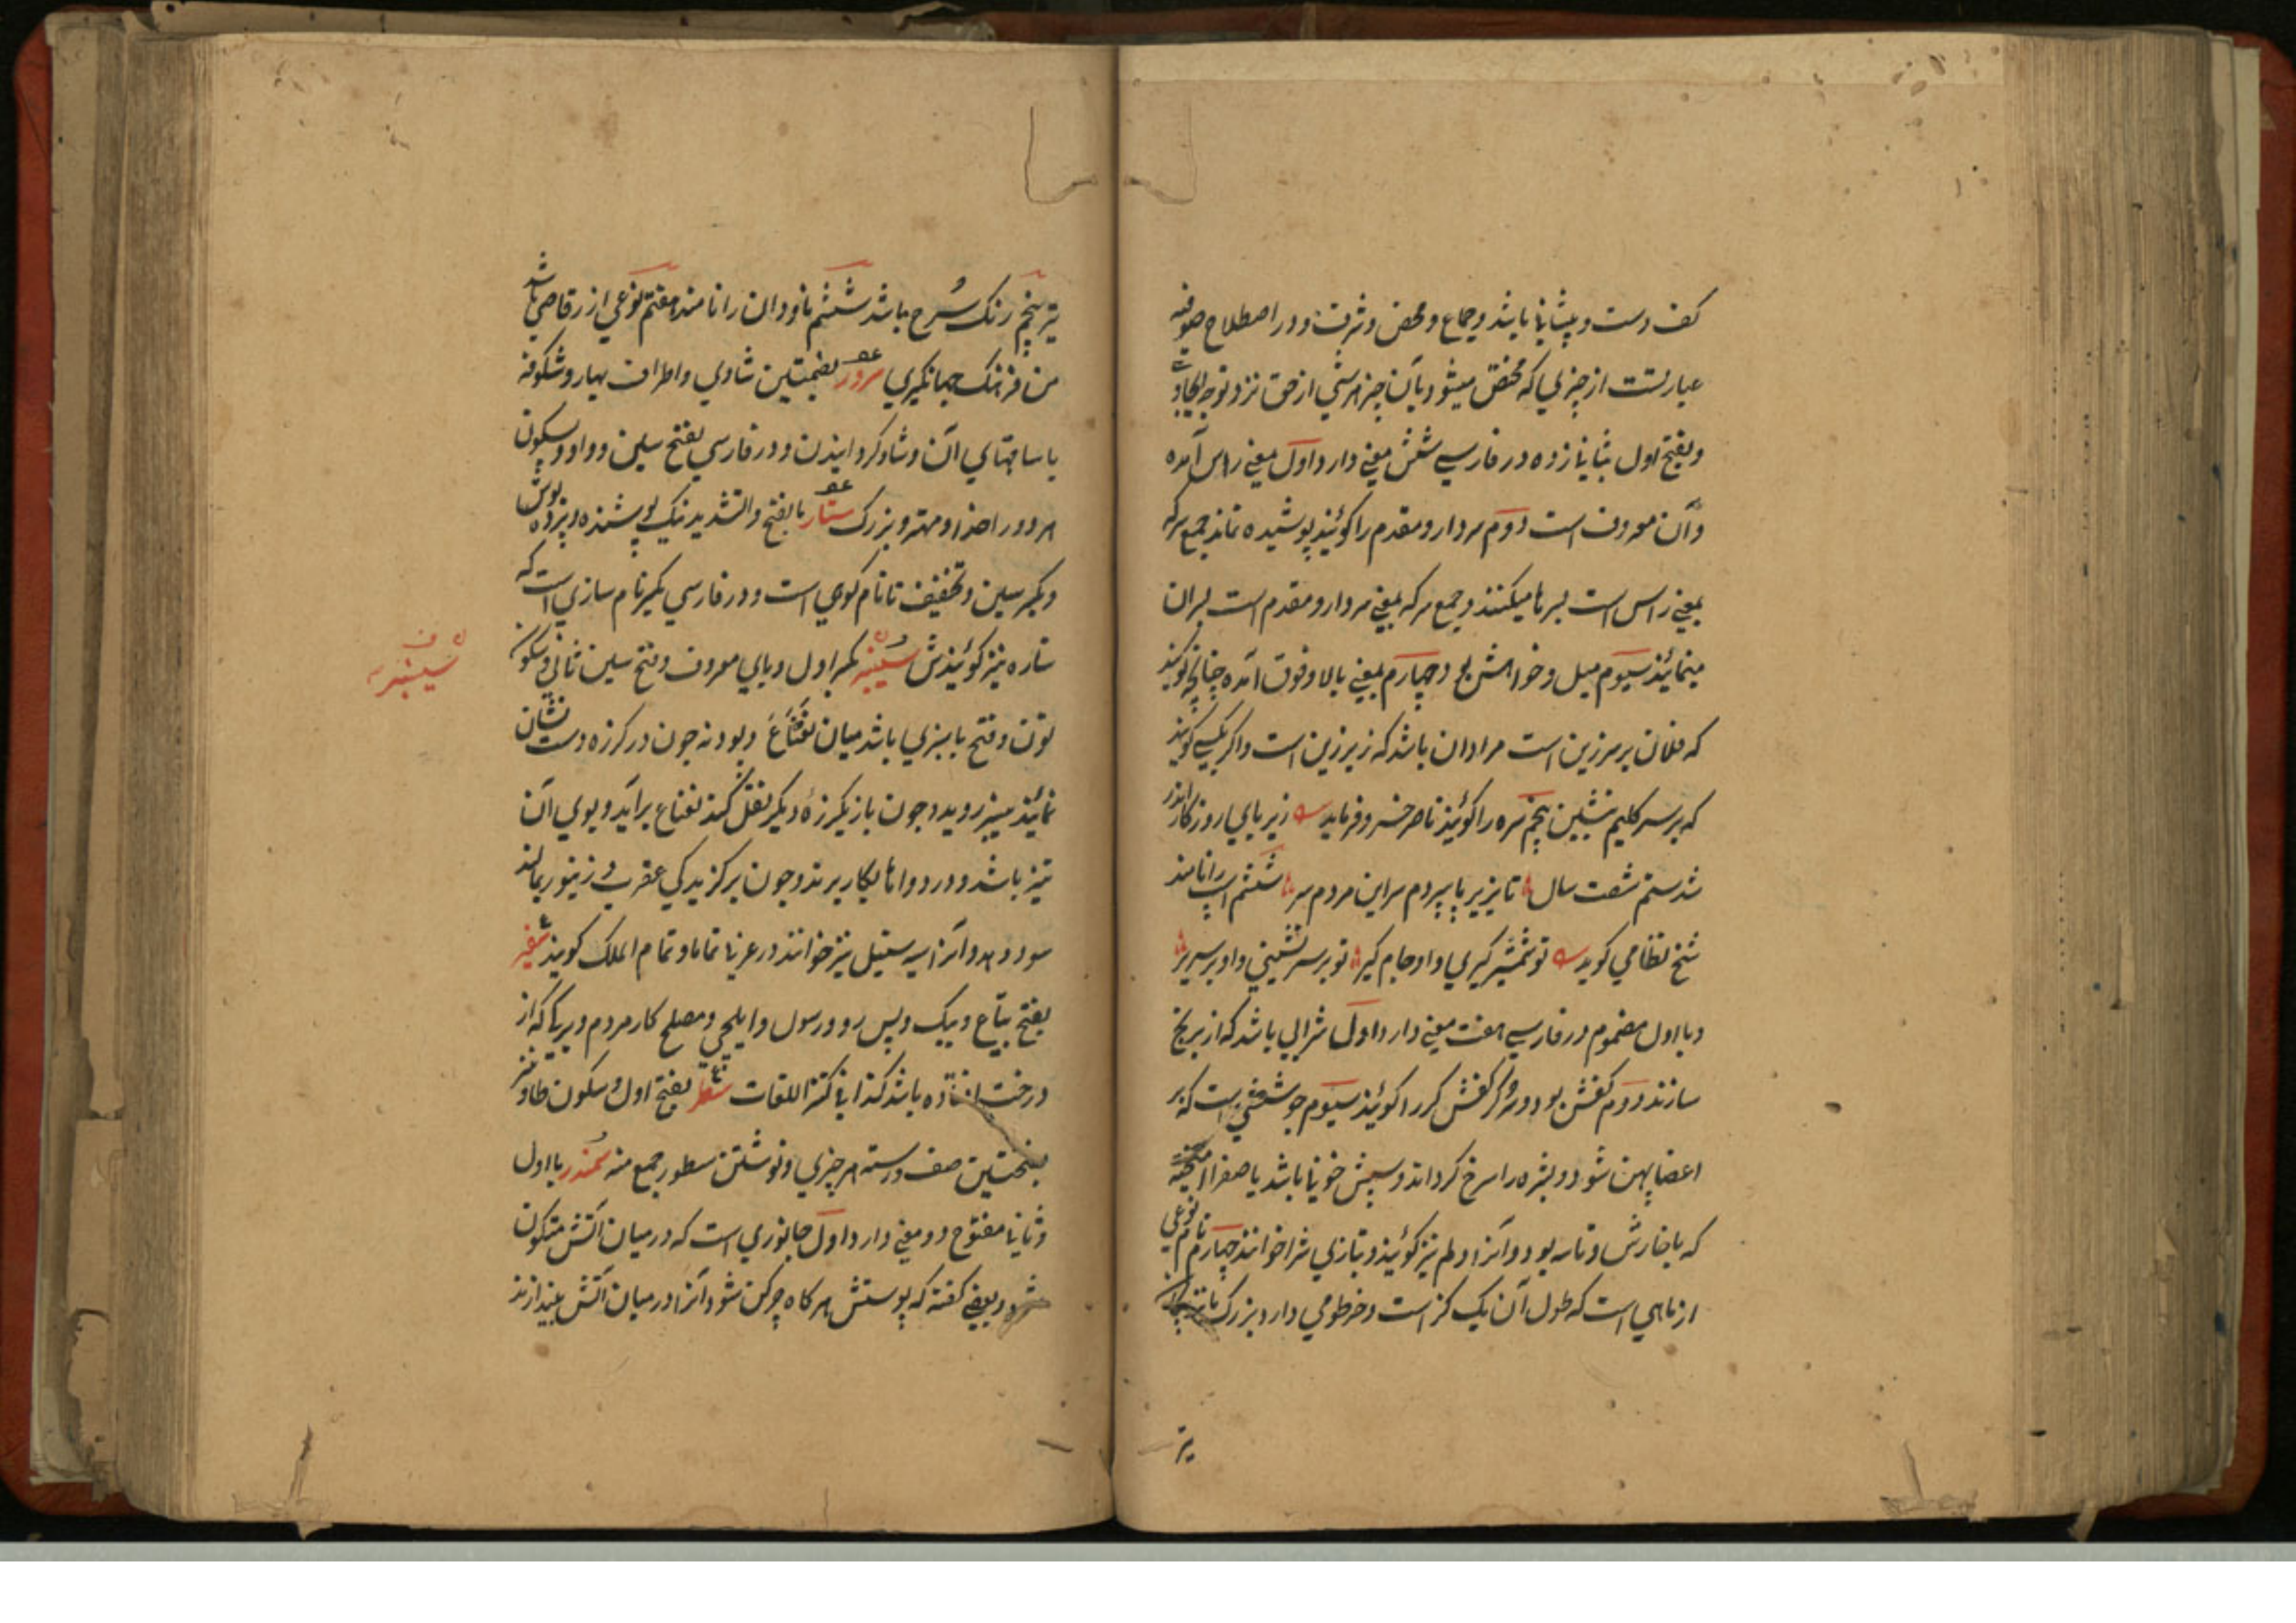 کف دست و پیشانی باشد و جماع و محض و شرف و در اصطلاح صوفیه
عبارتست از چیزی که مختص میشود بآن چیز هر شی از حق نزد توجه ایجادی
و بفتح اول بثانی زده در فارسی شش معنی دارد اول معنی راس آمده
و آن معروف است دوم سردار و مقدم را کویند پوشیده نماند جمع سر که
بمعنی راس است بسرها میکنند و جمع سر که بمعنی سردار و مقدم است بسران
مینمایند سیوم میل و خواهش بود چهارم بمعنی بالا و فوق آمده چنانچه کویند
که فلان بر سر زین است مراد آن باشد که زبر زین است و اکر بکسی کویند
که بر سر کلیم بنشین پنجم سره را کویند ناصر خسرو فرماید زیر بای روزکار اندر
شدستم شصت سال تا بزیر پا سپردم سر این مردم سر ششم اسپ را نامند
شیخ نظامی کوید تو شمشیر کیری و او جام کیر تو بر سر نشینی و او بر سریر
و با اول مضموم در فارسی هفت معنی دارد اول شرابی باشد که از برنج
سازند دوم کفش بود و سرکر کفش کر را کویند سیوم جوششی است که بر
اعضا پهن شود و بشره را سرخ کرداند و سببش خونی باشد یا صفرا آمیخته
که با خارش و تاسه بود و آنرا دلم نیز کویند و بتازی شرا خوانند چهارم نام نوعی
از ماهی است که طول آن یک کز است و خرطومی دارد بزرک
تیز
تیز پنجم رنک سرخ باشد ششم ناودان را نامند هفتم نوعی از رقاصی باشد
من فرهنک جهانکیری سرور بضمتین شادی و اطراف بهار و شکوفه
با ساقهای آن و شاد کردانیدن و در فارسی بفتح سین و واو و سکون
هر دو را خداوند مهتر و بزرک ستار بالفتح والتشدید نیک پوشنده و پرده پوش
و بکسر سین و تخفیف تا نام کوهی است و در فارسی بکسر نام سازی است که
ستاره نیز کویندش سیسنبر بکسر اول و یای معروف و فتح سین ثانی و سکون
نون و فتح با سبزی باشد میان نعناع و پودنه چون در کرزه دست نشان
نمایند سیسنبر روید و چون باز بکرزهٔ دیکر نقل کنند نعناع برآید و بوی آن
تیز باشد و در دواها بکار برند و چون بر کزیدکی عقرب و زنبور بمالند
سود دهد و آنرا سیسنبل نیز خوانند در عربی نماما و نمام الملک کویند سفیر
بفتح بیاع و پیک و پس رو و رسول و ایلچی و مصلح کار مردم و برکی که از
درخت افتاده باشد کذا فی کنز اللغات سطر بفتح اول و سکون طا و نیز
بفتحتین صف و رسته هر چیزی و نوشتن سطور جمع منه سمندر با اول
و ثانی مفتوح دو معنی دارد اول جانوری است که در میان آتش متکون
شود و بعضی کفته که پوستش هر کاه چرکن شود آنرا در میان آتش بیندازند
سیسنبر